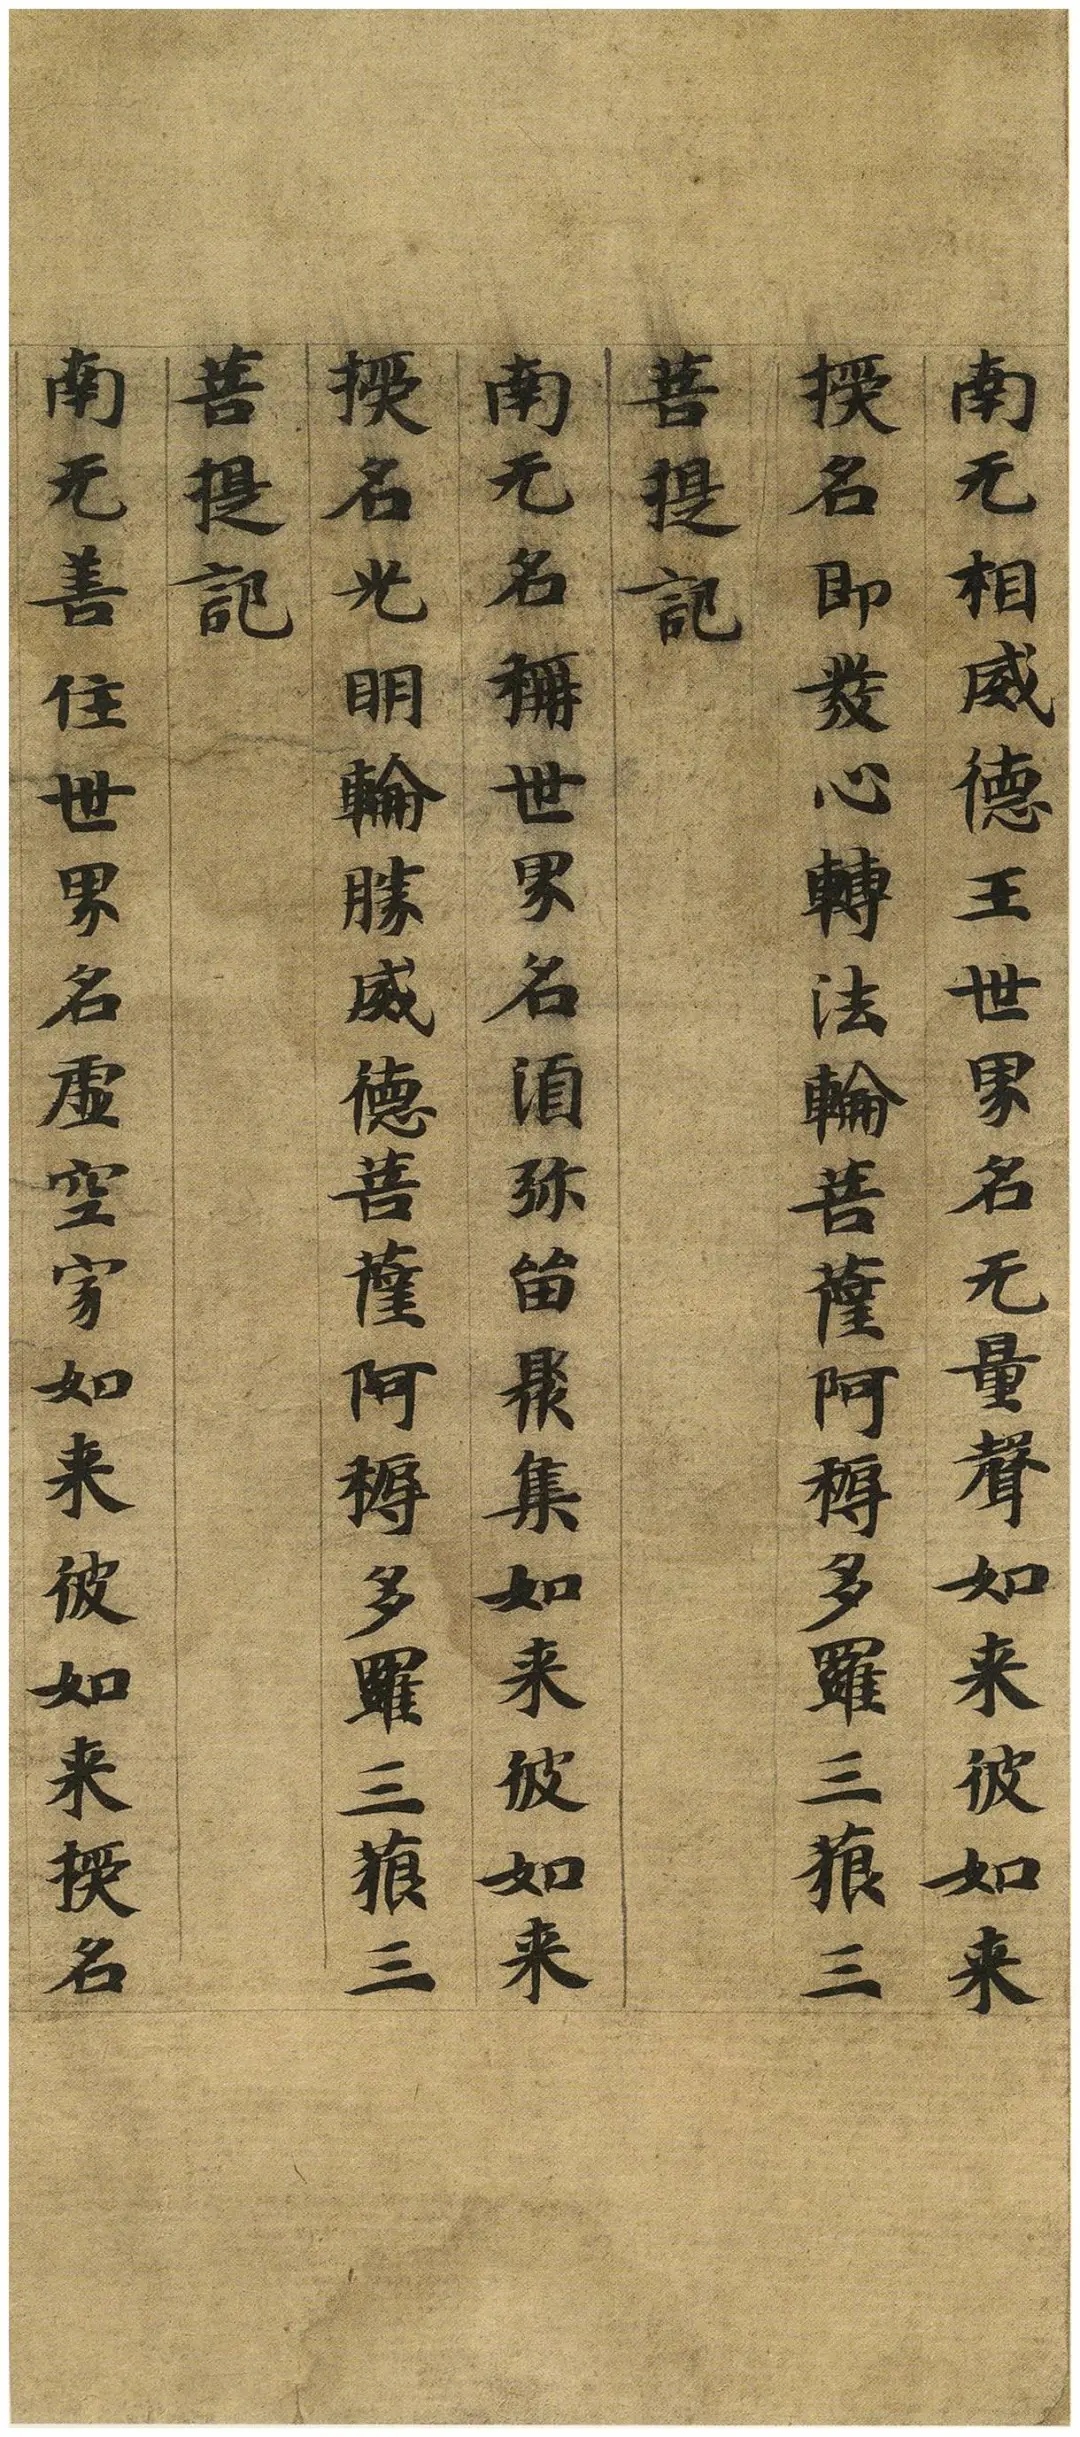 南无相威德王世界名无量聲如来彼如来
授名即發心轉法輪菩薩阿耨多羅三藐三
菩提記
南无名稱世界名須弥留聚集如来彼如来
授名光明輪勝威德菩薩阿耨多羅三藐三
菩提記
南无善住世界名虚空家如来彼如来授名